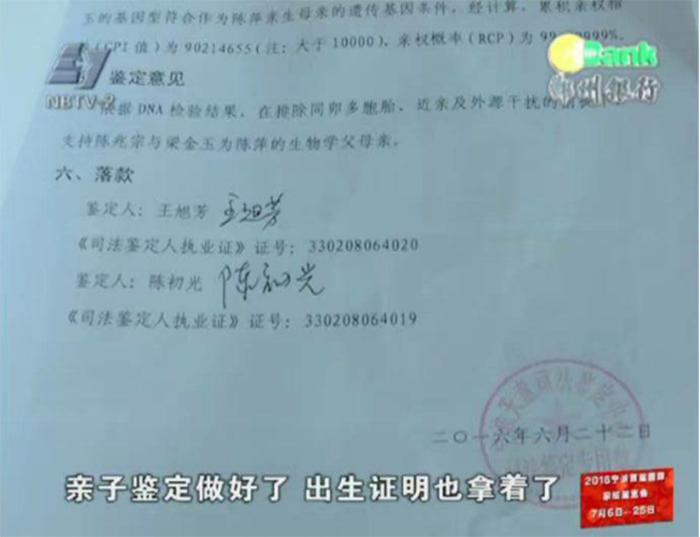 玉的基因型符合作为陈萍亲生母亲的遗传基因条件。经计算，累积亲权相
(CPI 值)为 90214655(注：大于 10000)，亲权概率(RCP)为 99.
鉴定意见
依据 DNA 检验结果，在排除同卵多胞胎、近亲及外源干扰的
支持陈兆宗与梁金玉为陈萍的生物学父母亲。
六、落款
鉴定人：王旭芳 王旭芳
《司法鉴定人执业证》证号：330208064020
鉴定人：陈初光 陈初光
《司法鉴定人执业证》证号：330208064019
二〇一六年六月二十二日
NBTV-2
Bank
州银行
亲子鉴定做好了 出生证明也拿着了
7月6日—25日